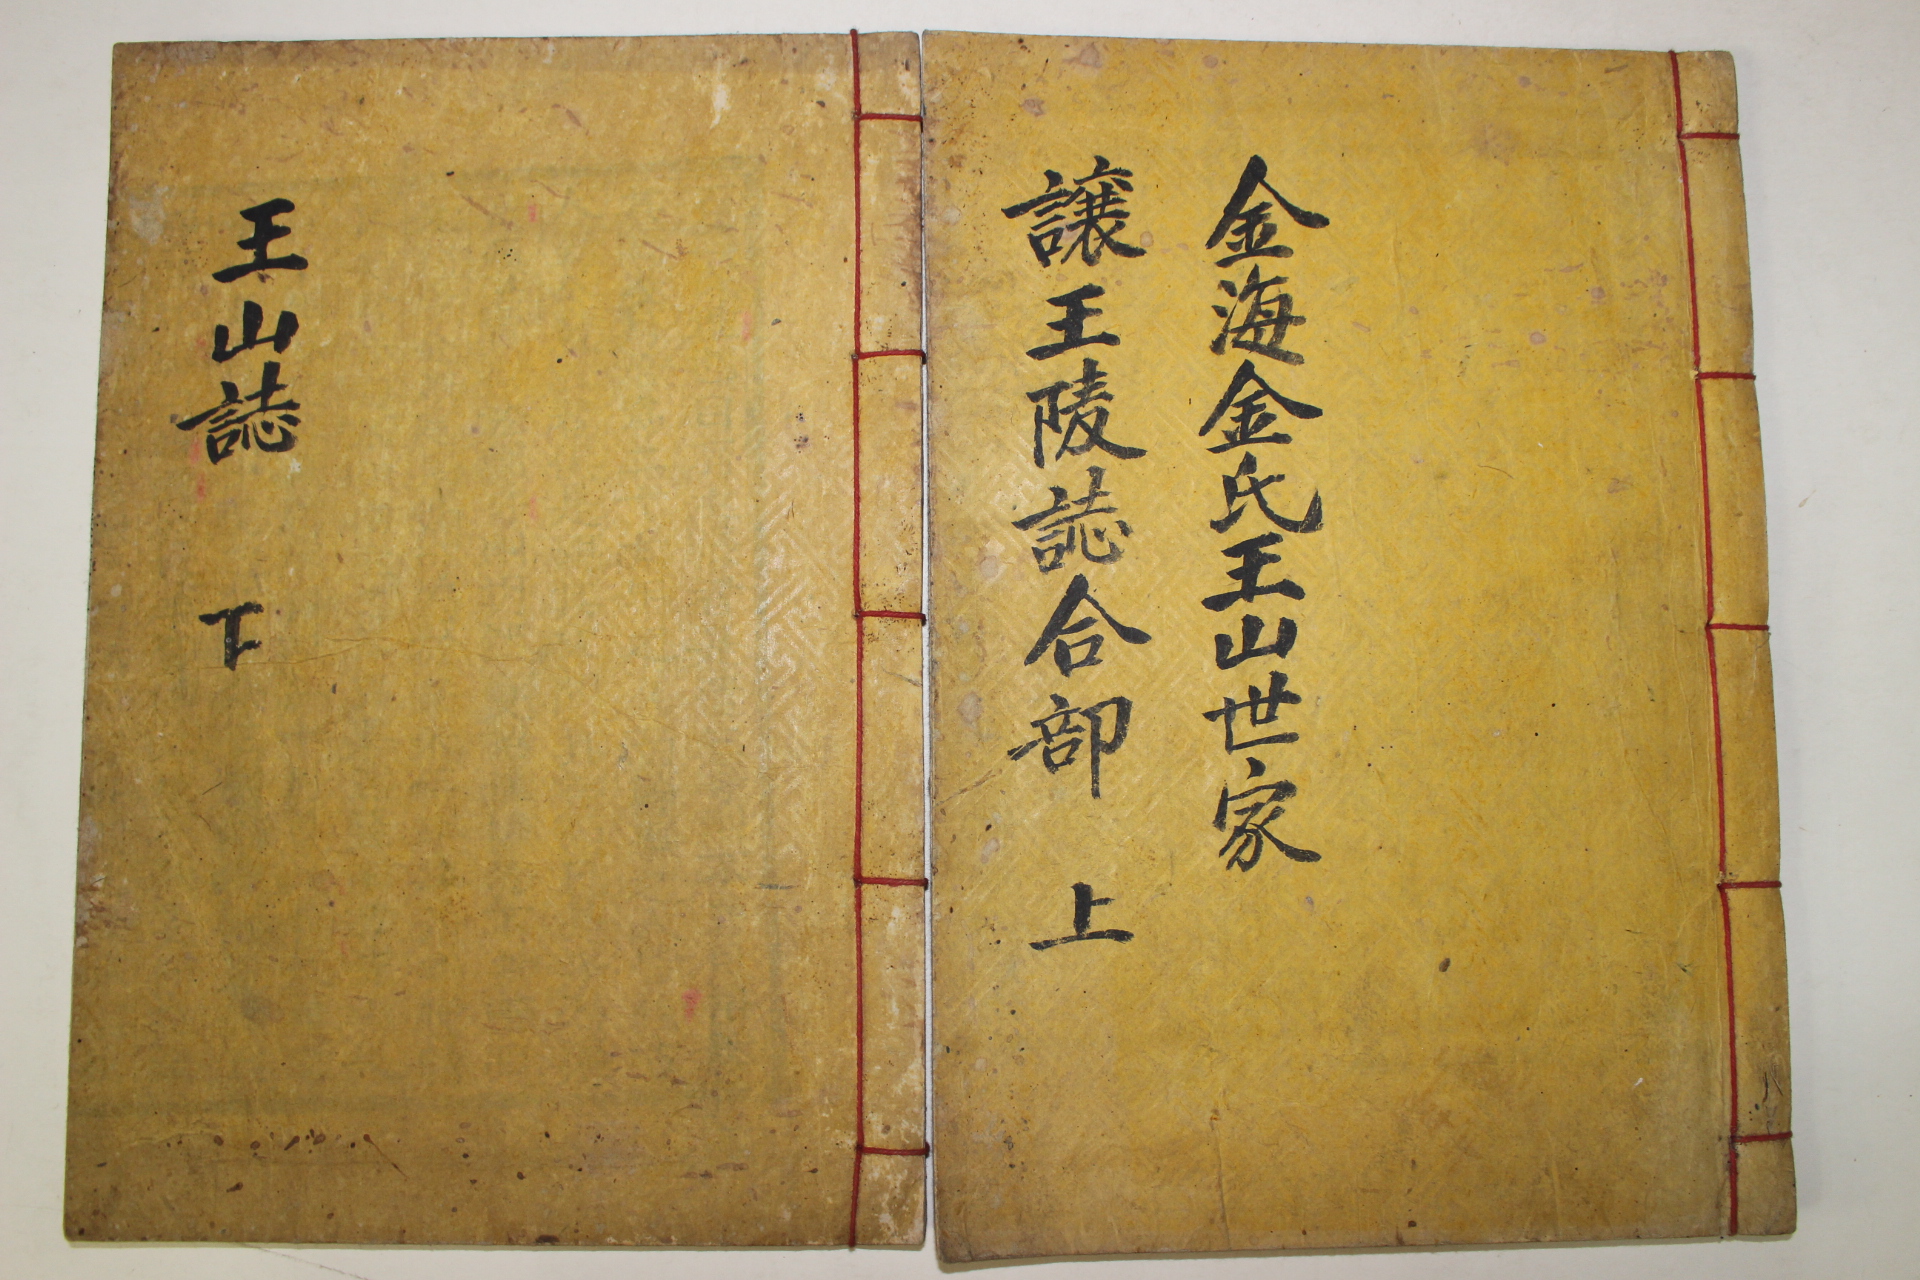 金海金氏王山世家
譲王陵誌合部 上
王山誌 下